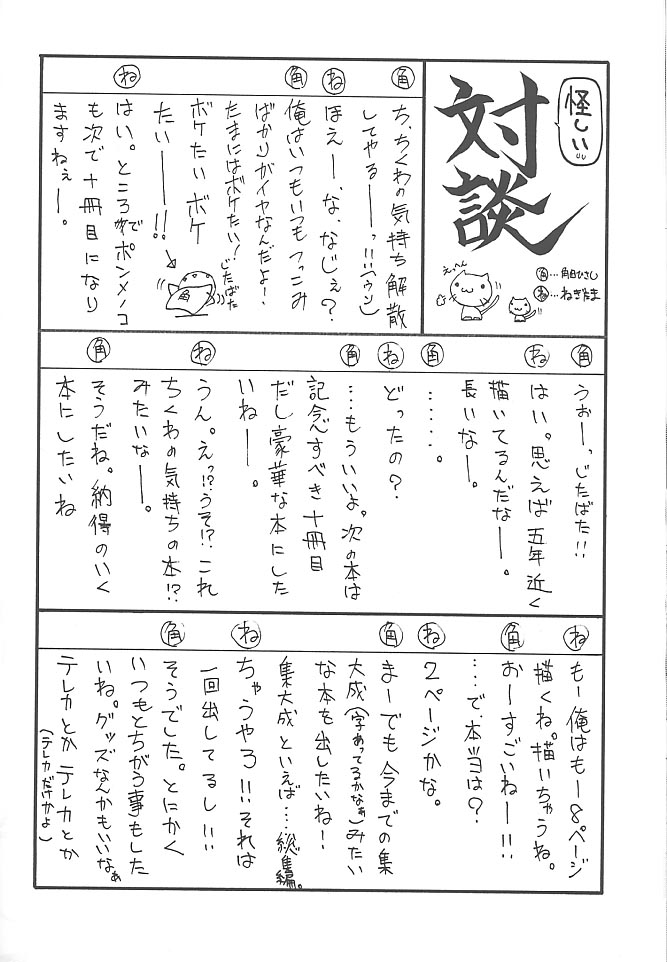 怪しい
対談
えっへん
角…角日ひさし
ね…ねぎたま
角 ち、ちくわの気持ち解散
してやるーっ!!(ウソ)
ね ほえー、な、なじぇ?
角 俺はいつもいつもつっこみ
ばかりがイヤなんだよ!
たまにはボケたい!
ボケたい ボケ
たいーー!!
じたばた
角
ね はい。ところでポンメノコ
も次で十冊目になり
ますねぇー。
角 うぉーっ、じたばた!!
ね はい。思えば五年近く
描いてるんだなー。
長いなー。
角 ……。
ね どったの?
角 …もういいよ。次の本は
記念すべき十冊目
だし豪華な本にした
いねー。
ね うん。えっ!?うそ!?これ
ちくわの気持ちの本!?
みたいなー。
角 そうだね。納得のいく
本にしたいね
ね もー俺はもー8ページ
描くね。描いちゃうね。
角 おーすごいねー!!
…で、本当ョは?
ね 2ページかな。
角 まーでも今までの集
大成(字あってるかなぁ)みたい
な本を出したいね!
集大成といえば…総集編。
ね ちゃうやろ!!それは
一回出してるし!!
角 そうでした。とにかく
いつもとちがう事もした
いね。グッズなんかもいいなぁ
テレカとか テレカとか
(テレカだけかよ)